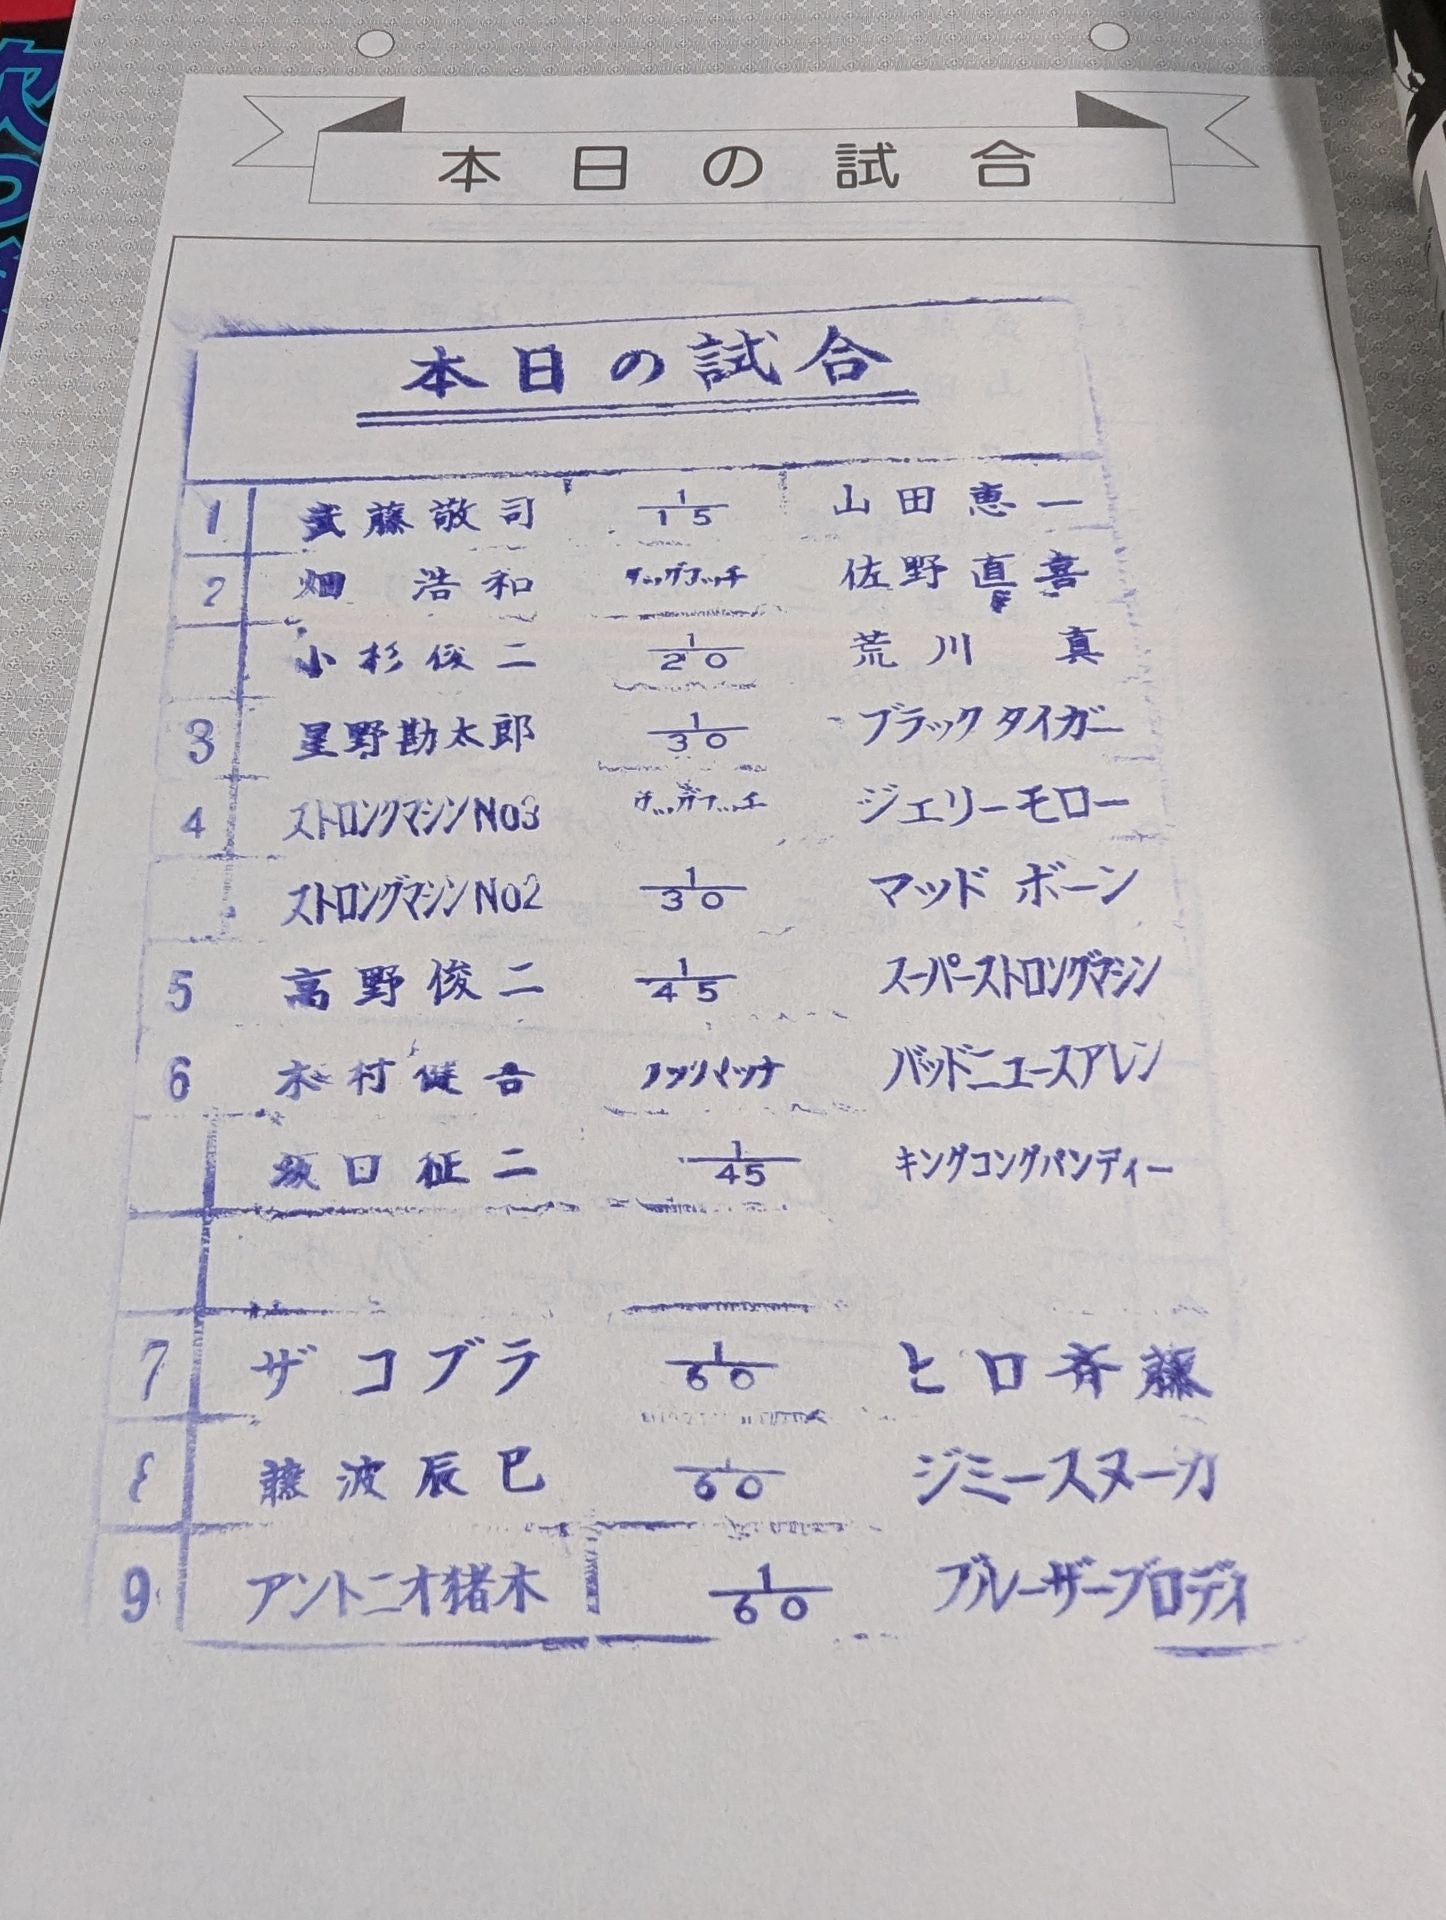 本日の試合
本日の試合
1 武藤敬司 1/15 山田恵一
2 畑 浩和 タッグマッチ 佐野直喜
小杉俊二 1/20 荒川 真
3 星野勘太郎 1/30 ブラックタイガー
4 ストロングマシンNo3 タッグマッチ ジェリーモロー
ストロングマシンNo2 1/30 マッドボーン
5 高野俊二 1/45 スーパーストロングマシン
6 木村健吾 タッグマッチ バッドニュースアレン
坂口征二 1/45 キングコングバンディー
7 ザコブラ 1/60 ヒロ斉藤
8 藤波辰巳 1/60 ジミースヌーカ
9 アントニオ猪木 1/60 ブルーザーブロディ